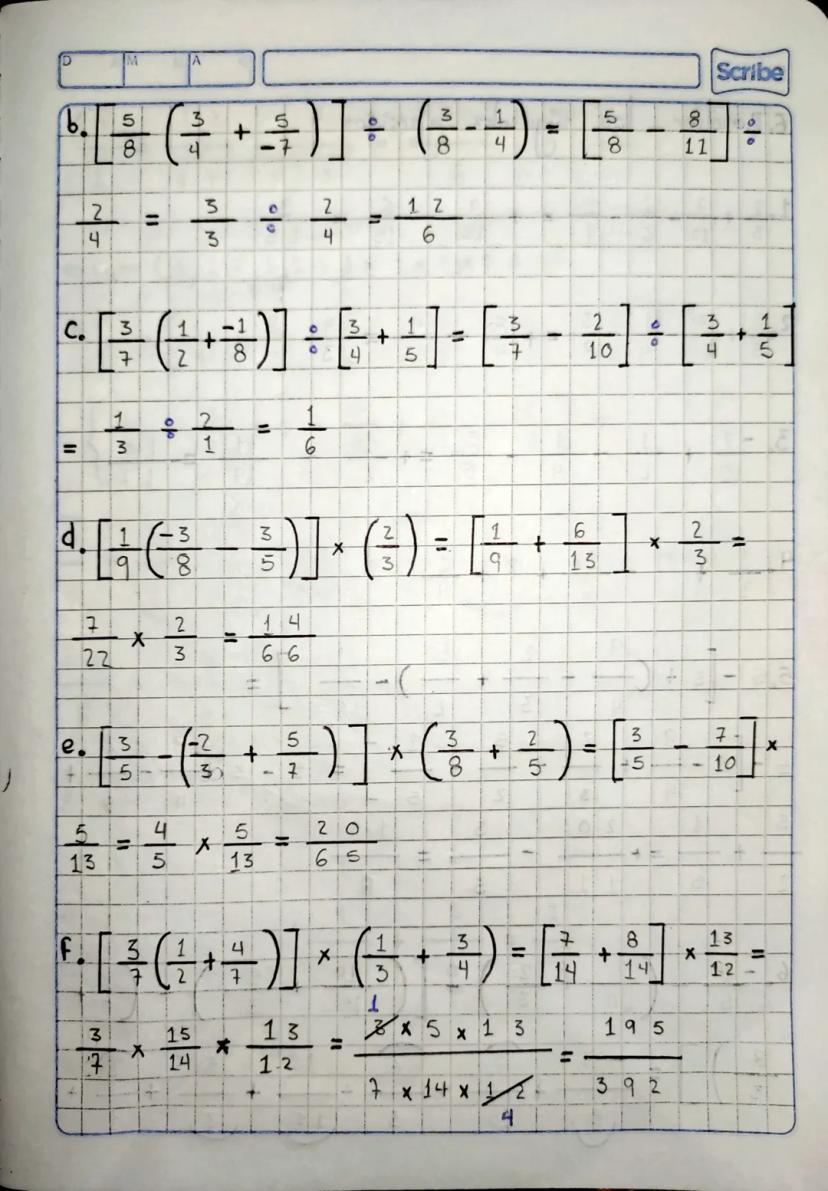 D M A Scribe
b. [5/8 (3/4 + 5/-7)] ÷ (3/8 - 1/4) = [5/8 - 8/11] ÷
2/4 = 3/3 ÷ 2/4 = 12/6
c. [3/7 (1/2 + -1/8)] ÷ [3/4 + 1/5] = [3/7 - 2/10] ÷ [3/4 + 1/5]
= 1/3 ÷ 2/1 = 1/6
d. [1/9 (-3/8 - 3/5)] × (2/3) = [1/9 + 6/13] × 2/3 =
7/22 × 2/3 = 14/66
e. [3/5 - (-2/3 + 5/-7)] × (3/8 + 2/5) = [3/-5 - 7/10] ×
5/13 = 4/5 × 5/13 = 20/65
f. [3/7 (1/2 + 4/7)] × (1/3 + 3/4) = [7/14 + 8/14] × 13/12 =
1
3/7 × 15/14 × 13/12 = 3 × 5 × 13 / 7 × 14 × 12 = 195/392
4